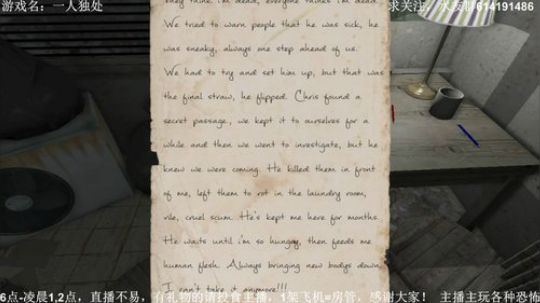 游戏名:一人独处
求关注,水友群614191486
they think i'm dead, everyone thinks i'm dead.
We tried to warn people that he was sick, he
was sneaky, always one step ahead of us.
We had to try and set him up, but that was
the final straw, he flipped. Chris found a
secret passage, we kept it to ourselves for a
while and then we went to investigate, but he
knew we were coming. He killed them in front
of me, left them to rot in the laundry room,
vile, cruel scum. He's kept me here for months.
He waits until i'm so hungry, then feeds me
human flesh. Always bringing new bodys down,
I can't take it anymore!!!
6点-凌晨1,2点,直播不易,有礼物的请投食主播,1架飞机=房管,感谢大家! 主播主玩各种恐怖